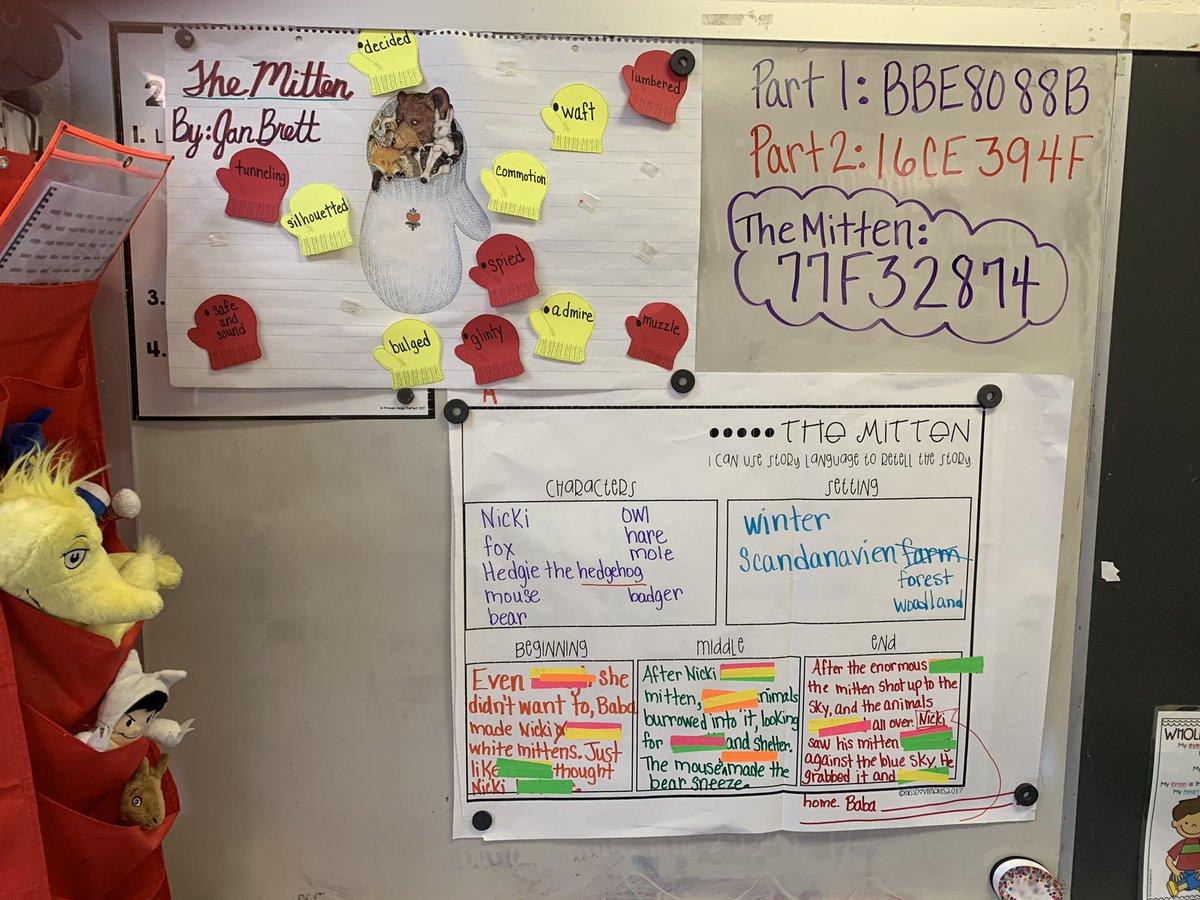 The Mitten
By: Jan Brett
decided
waft
lumbered
tunneling
silhouetted
commotion
spied
safe and sound
bulged
glinty
admire
muzzle
2
1.
3.
4.
Part 1: BBE8088B
Part 2: 16CE394F
The Mitten:
77F32874
A
THE MITTEN
I CAN USE STORY LANGUAGE TO RETELL THE STORY
CHARACTERS
Nicki
fox
Hedgie the hedgehog
mouse
bear
owl
hare
mole
badger
SETTING
winter
Scandanavien farm
forest
woodland
BEGINNING
Even she
didn't want to, Baba
made Nicki
white mittens. Just
like thought
Nicki
MIDDLE
After Nicki
mitten, animals
burrowed into it, looking
for and shelter.
The mouse made the
bear sneeze.
END
After the enormous
the mitten shot up to the
sky, and the animals
all over. Nicki
saw his mitten
against the blue sky. He
grabbed it and
home. Baba
©MISSDOVEMAMS2017
WHOL
My eye
My brain is
My hear